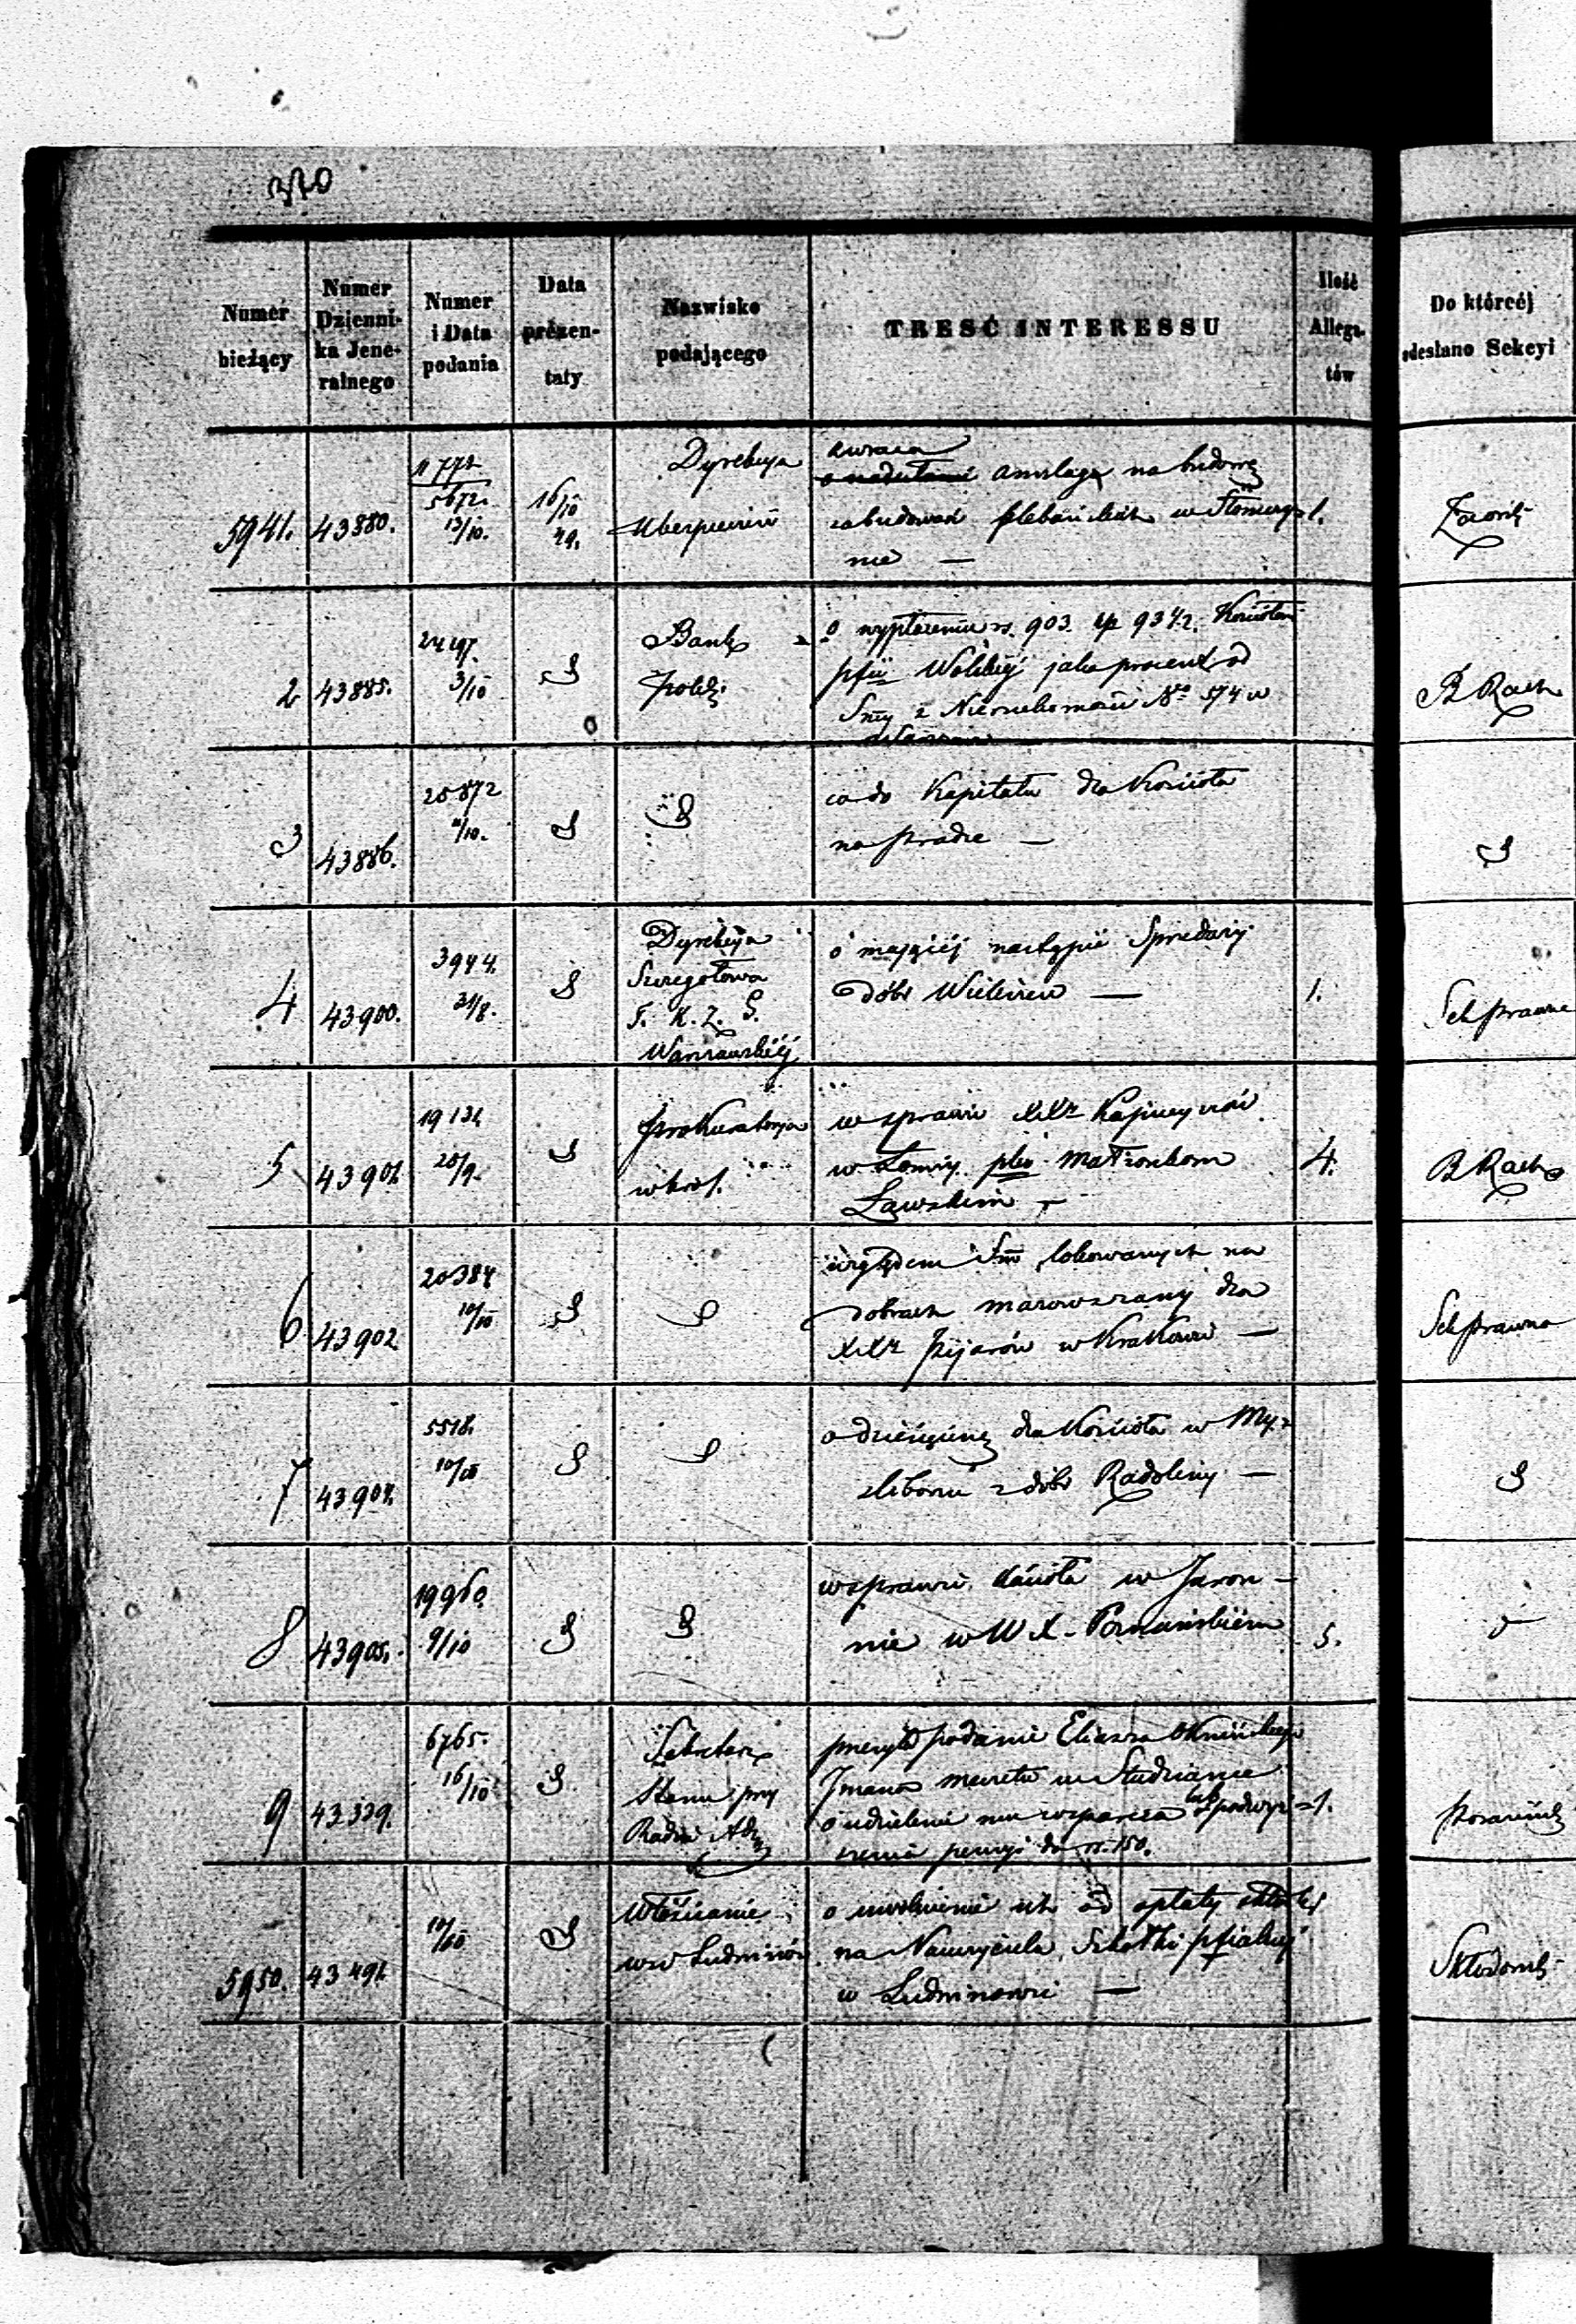 370
Numer bieżący
Numer Dzienni-ka Jene-ralnego
Numer i Data podania
Data prezen-taty
Nazwisko podającego
TREŚĆ INTERESSU
Ilość Allega-tów
Do któréj odesłano Sekcyi
5941. 43880. 11772 5672. 13/10. 16/10 49. Dyrekcya Ubezpieczeń
zwraca
o nadesłanie anszlagu na budowę
zabudowań plebańskich w Słomczy=
nie —
1.
2 43885. 3/10 Bank Polski
o wypłaceniu rs. 903 kp 93 1/2 Kościołowi
pfii Wolskiej jako procent od
Smy z Nieruchomości No 574 w
Warszawie
B Rach
3 43886. 20872 11/10.
co do Kapitału dla Kościoła
na Pradze —
4 43900. 3944. 31/8. Dyrekcya
Szczegółowa
T. K. Z. G.
Warszawskiej
o mającej nastąpić Sprzedaży
dóbr —
1.
Sek prawna
5 43901. 20/9. Prokuratorya
w Król.
w sprawie XXz Kapucynów
w Łomży plko Małżonkom
Ławskim —
4.
B Rach
6 43902 20384 10/10
względem Sm lokowanych na
dobrach dla
XXz Pijarów w Krakowie —
Sek prawna
7 43904. 5518. 10/10
o dziesięcinę dla Kościoła w My=
śliborzu z dóbr Radoliny —
8 43905. 19960. 9/10
w sprawie Kościoła w Jaro-
nie w W X. Poznańskiem
5.
9 43339. 6765. 16/10 Sekretarz
Stanu przy
Radzie Adm
przesyła podanie Eliasza
Imana meczetu w Studziance
o udzielenie mu wsparcia lub podwyż=
szenia pensyi do rs. 150.
1.
5950. 43491. 10/10 Włościanie
wsi Ludwinów
o uwolnienie ich od opłaty składki
na Nauczyciela Szkółki pfialnej
w Ludwinowie —